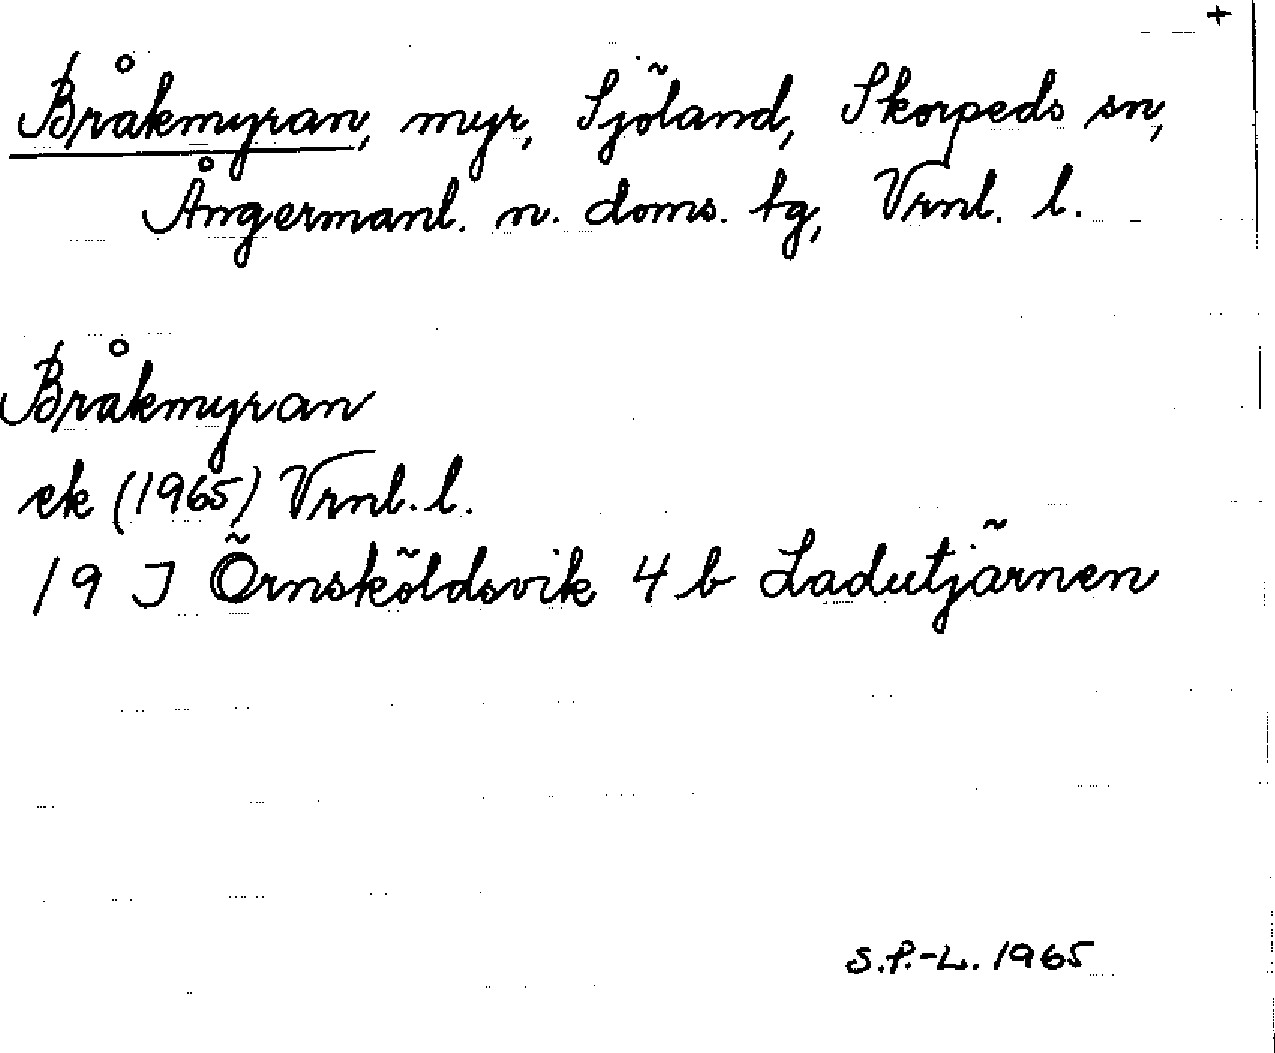 +
Bråkmyran, myr, Sjöland, Skorpeds sn,
Ångermanl. n. doms. tg, Vrnl. l.
Bråkmyran
ek (1965) Vrnl. l.
19 J Örnsköldsvik 4 b Ladutjärnen
S.P.-L. 1965